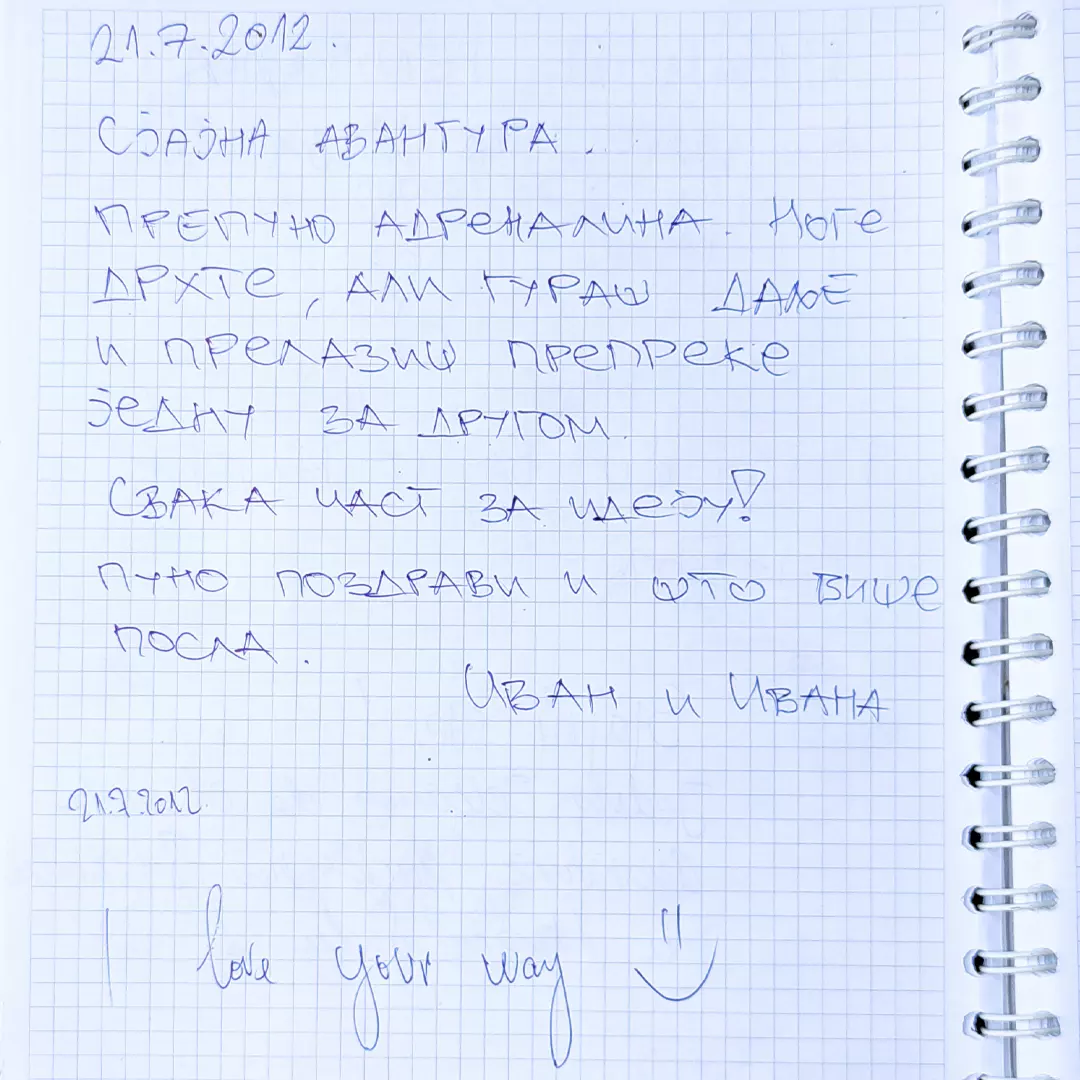 21.7.2012.
Сјајна авантура.
Препуно адреналина. Ноге
дрхте, али гураш даље
и прелазиш препреке
једну за другом.
Свака част за идеју!
Пуно поздрави и што више
посла.
Иван и Ивана
21.7.2012.
I love your way =)